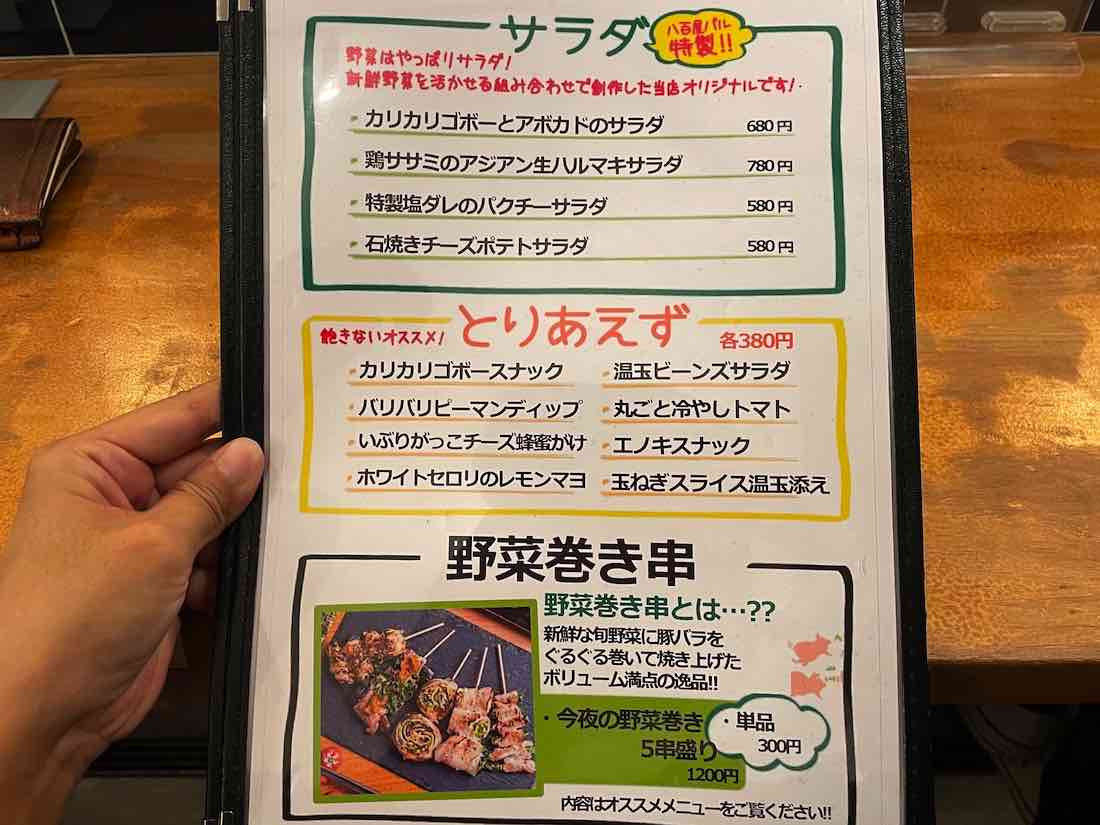 サラダ
八百屋バル
特製!!
野菜はやっぱりサラダ!
新鮮野菜を活かせる組み合わせで創作した当店オリジナルです!
・カリカリゴボーとアボカドのサラダ 680円
・鶏ササミのアジアン生ハルマキサラダ 780円
・特製塩ダレのパクチーサラダ 580円
・石焼きチーズポテトサラダ 580円
飽きないオススメ! とりあえず 各380円
・カリカリゴボースナック
・バリバリピーマンディップ
・いぶりがっこチーズ蜂蜜がけ
・ホワイトセロリのレモンマヨ
・温玉ビーンズサラダ
・丸ごと冷やしトマト
・エノキスナック
・玉ねぎスライス温玉添え
野菜巻き串
野菜巻き串とは…??
新鮮な旬野菜に豚バラを
ぐるぐる巻いて焼き上げた
ボリューム満点の逸品!!
・今夜の野菜巻き
5串盛り
1200円
・単品
300円
内容はオススメメニューをご覧ください!!